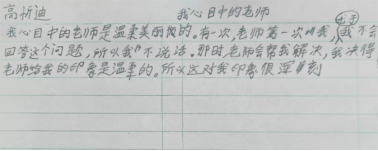 高析迪 我心目中的老师
我心目中的老师是温柔美丽的。有一次,老师第一次叫我,我不会
回答这个问题,所以我不说话。那时,老师会帮我解决,我决得
老师给我的印象是温柔的。所以这对我印离很深刻